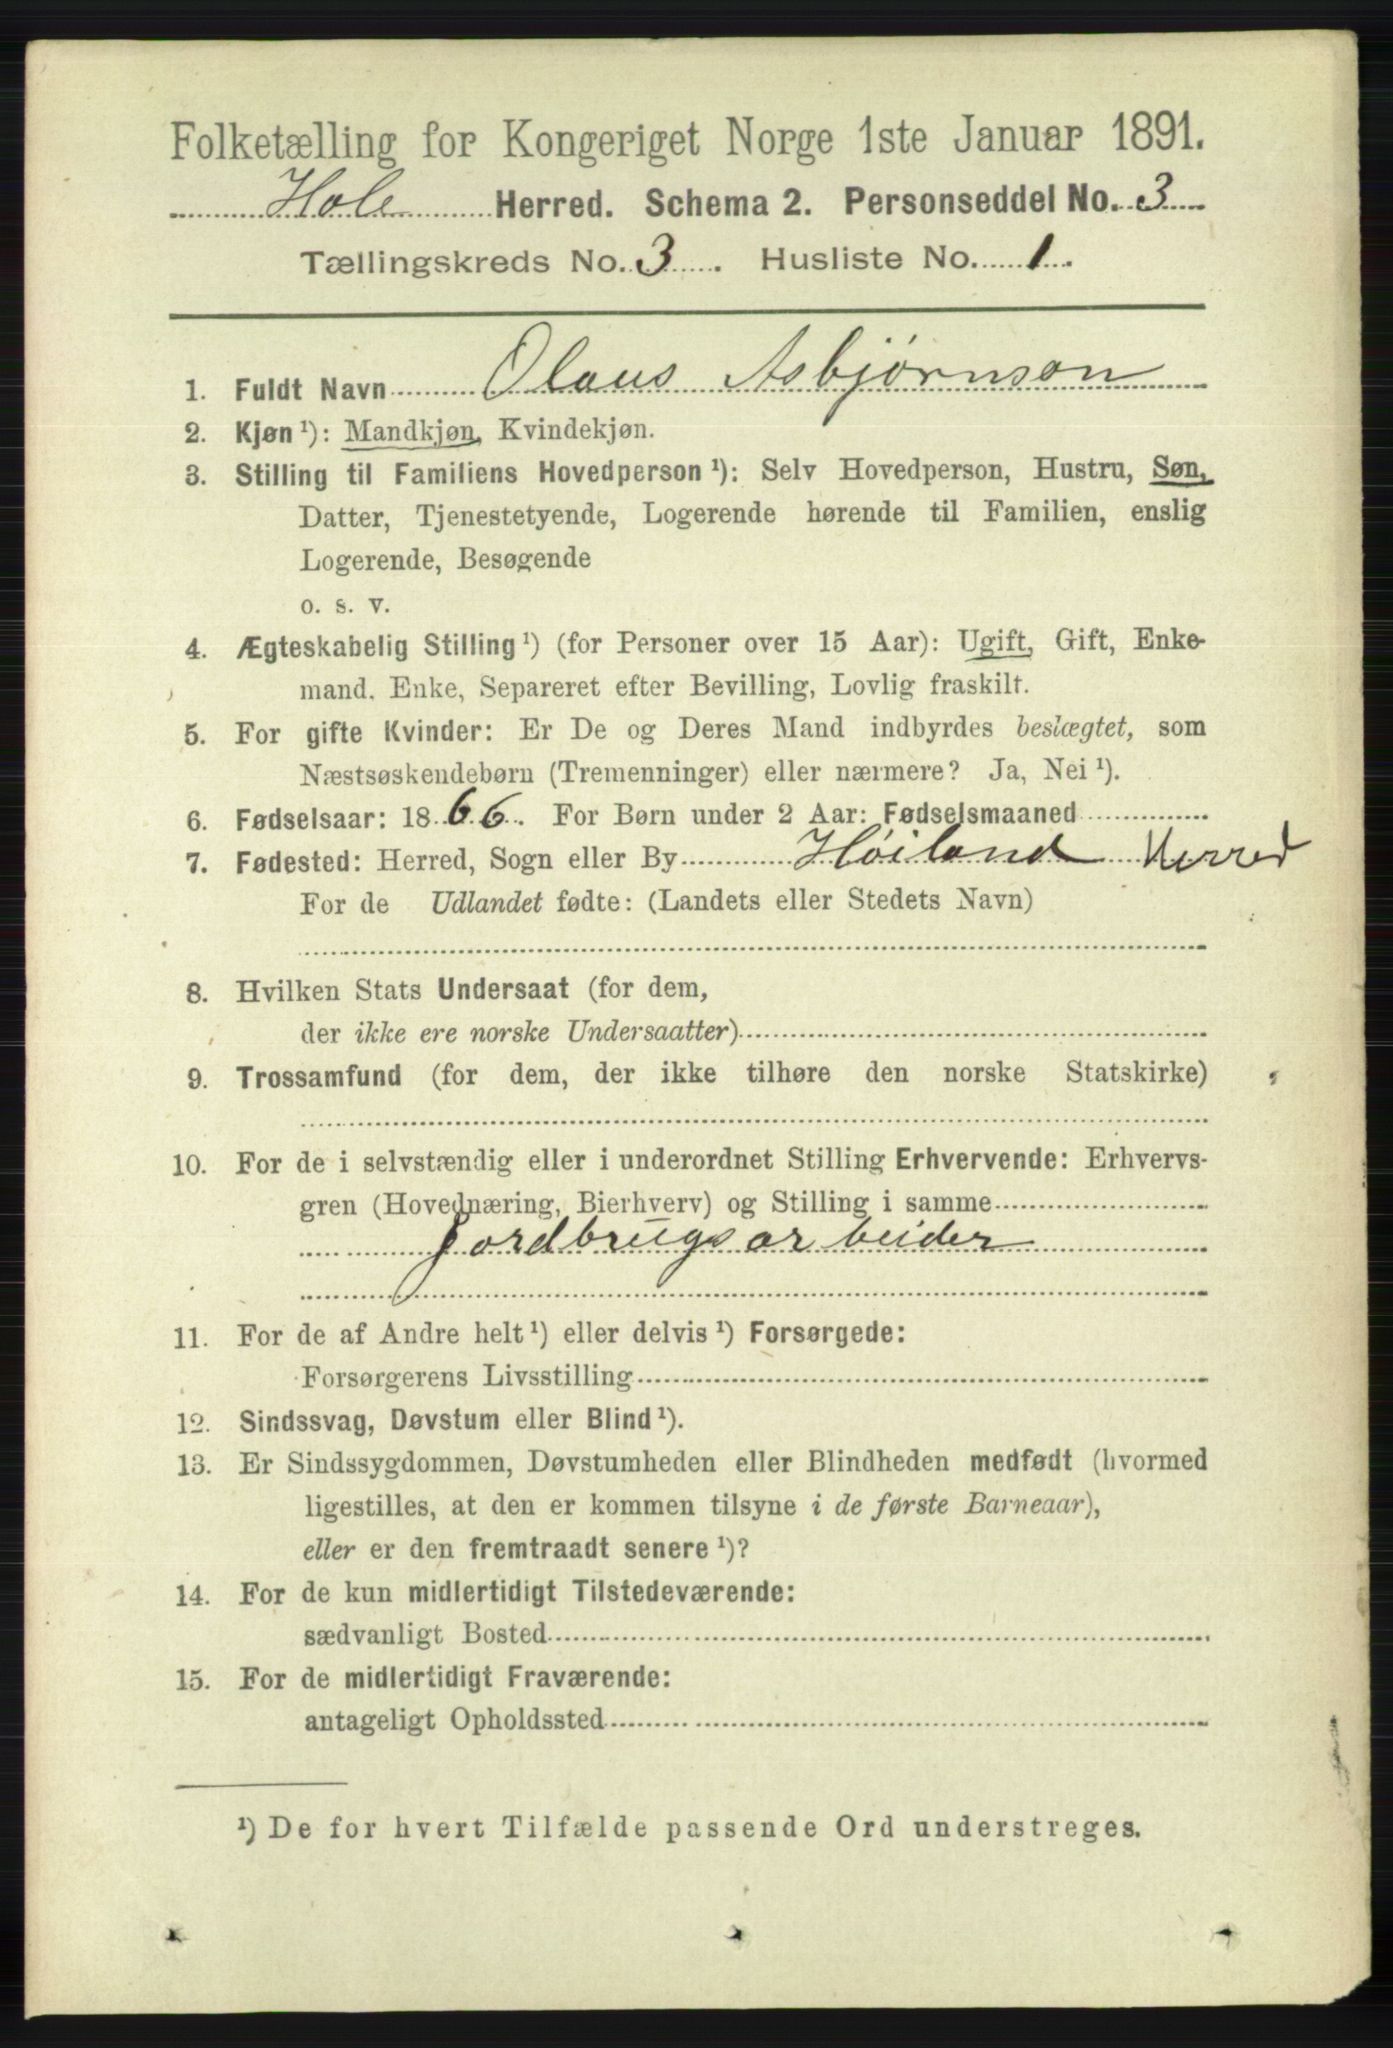 Folketælling for Kongeriget Norge 1ste Januar 1891.
Hole Herred. Schema 2. Personseddel No. 3
Tællingskreds No. 3. Husliste No. 1.
1. Fuldt Navn Olaus Asbjørnson
2. Kjøn ¹): Mandkjøn, Kvindekjøn.
3. Stilling til Familiens Hovedperson ¹): Selv Hovedperson, Hustru, Søn,
Datter, Tjenestetyende, Logerende hørende til Familien, enslig
Logerende, Besøgende
o. s. v.
4. Ægteskabelig Stilling ¹) (for Personer over 15 Aar): Ugift, Gift, Enke-
mand, Enke, Separeret efter Bevilling, Lovlig fraskilt.
5. For gifte Kvinder: Er De og Deres Mand indbyrdes beslægtet, som
Næstsøskendebørn (Tremenninger) eller nærmere? Ja, Nei ¹).
6. Fødselsaar: 1866. For Børn under 2 Aar: Fødselsmaaned
7. Fødested: Herred, Sogn eller By Høiland Herred
For de Udlandet fødte: (Landets eller Stedets Navn)
8. Hvilken Stats Undersaat (for dem,
der ikke ere norske Undersaatter)
9. Trossamfund (for dem, der ikke tilhøre den norske Statskirke)
10. For de i selvstændig eller i underordnet Stilling Erhvervende: Erhvervs-
gren (Hovednæring, Bierhverv) og Stilling i samme
Jordbrugsarbeider
11. For de af Andre helt ¹) eller delvis ¹) Forsørgede:
Forsørgerens Livsstilling
12. Sindssvag, Døvstum eller Blind ¹).
13. Er Sindssygdommen, Døvstumheden eller Blindheden medfødt (hvormed
ligestilles, at den er kommen tilsyne i de første Barneaar),
eller er den fremtraadt senere ¹)?
14. For de kun midlertidigt Tilstedeværende:
sædvanligt Bosted
15. For de midlertidigt Fraværende:
antageligt Opholdssted
¹) De for hvert Tilfælde passende Ord understreges.